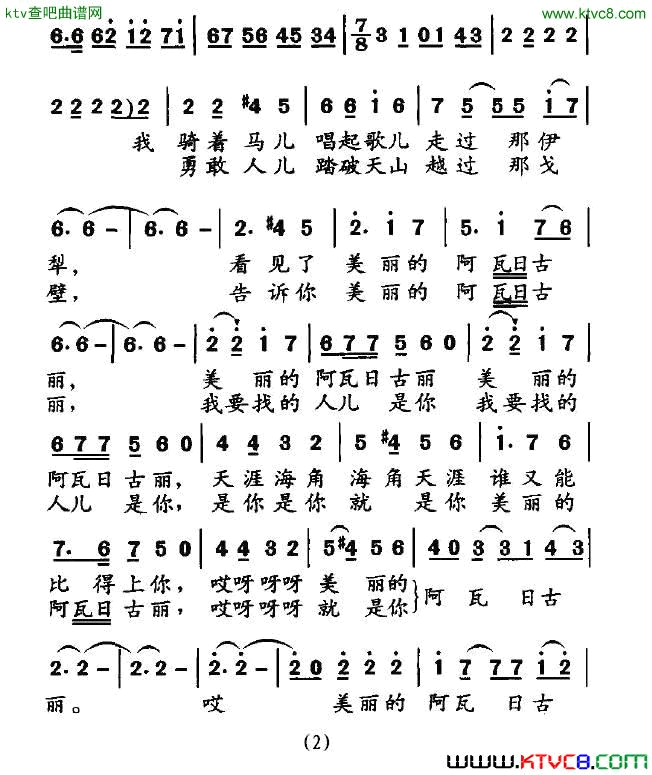 ktv查吧曲谱网 www.ktvc8.com
6.6 62 12 71 | 67 56 45 34 | 7/8 3 1 01 43 | 2 2 2 2 |
2 2 2 2 2) 2 | 2 2 #4 5 | 6 6 1 6 | 7 5 5 5 1 7 |
我 骑着马儿 唱起歌儿 走过 那伊
勇敢人儿 踏破天山 越过 那戈
6. 6 - | 6. 6 - | 2. #4 5 | 2. 1 7 | 5. 1 7 6 |
犁, 看见了 美丽的 阿瓦日古
壁, 告诉你 美丽的 阿瓦日古
6. 6 - | 6. 6 - | 2 2 1 7 | 6 7 7 5 6 0 | 2 2 1 7 |
丽, 美 丽的 阿瓦日古丽 美 丽的
丽, 我要找的 人儿 是你 我要找的
6 7 7 5 6 0 | 4 4 3 2 | 5 #4 5 6 | 1. 7 6 |
阿瓦日古丽, 天涯海角 海角天涯 谁又能
人儿 是你, 是你是你 就 是你 美丽的
7. 6 7 5 0 | 4 4 3 2 | 5 #4 5 6 | 4 0 3 3 1 4 3 |
比 得上你, 哎呀呀呀 美 丽的 阿 瓦 日古
阿瓦日古丽, 哎呀呀呀 就 是你
2. 2 - | 2. 2 - | 2. 2 - | 2 0 2 2 2 | 1 7 7 7 1 2 |
丽。 哎 美丽的 阿瓦 日古
(2)
www.KTVC8.com